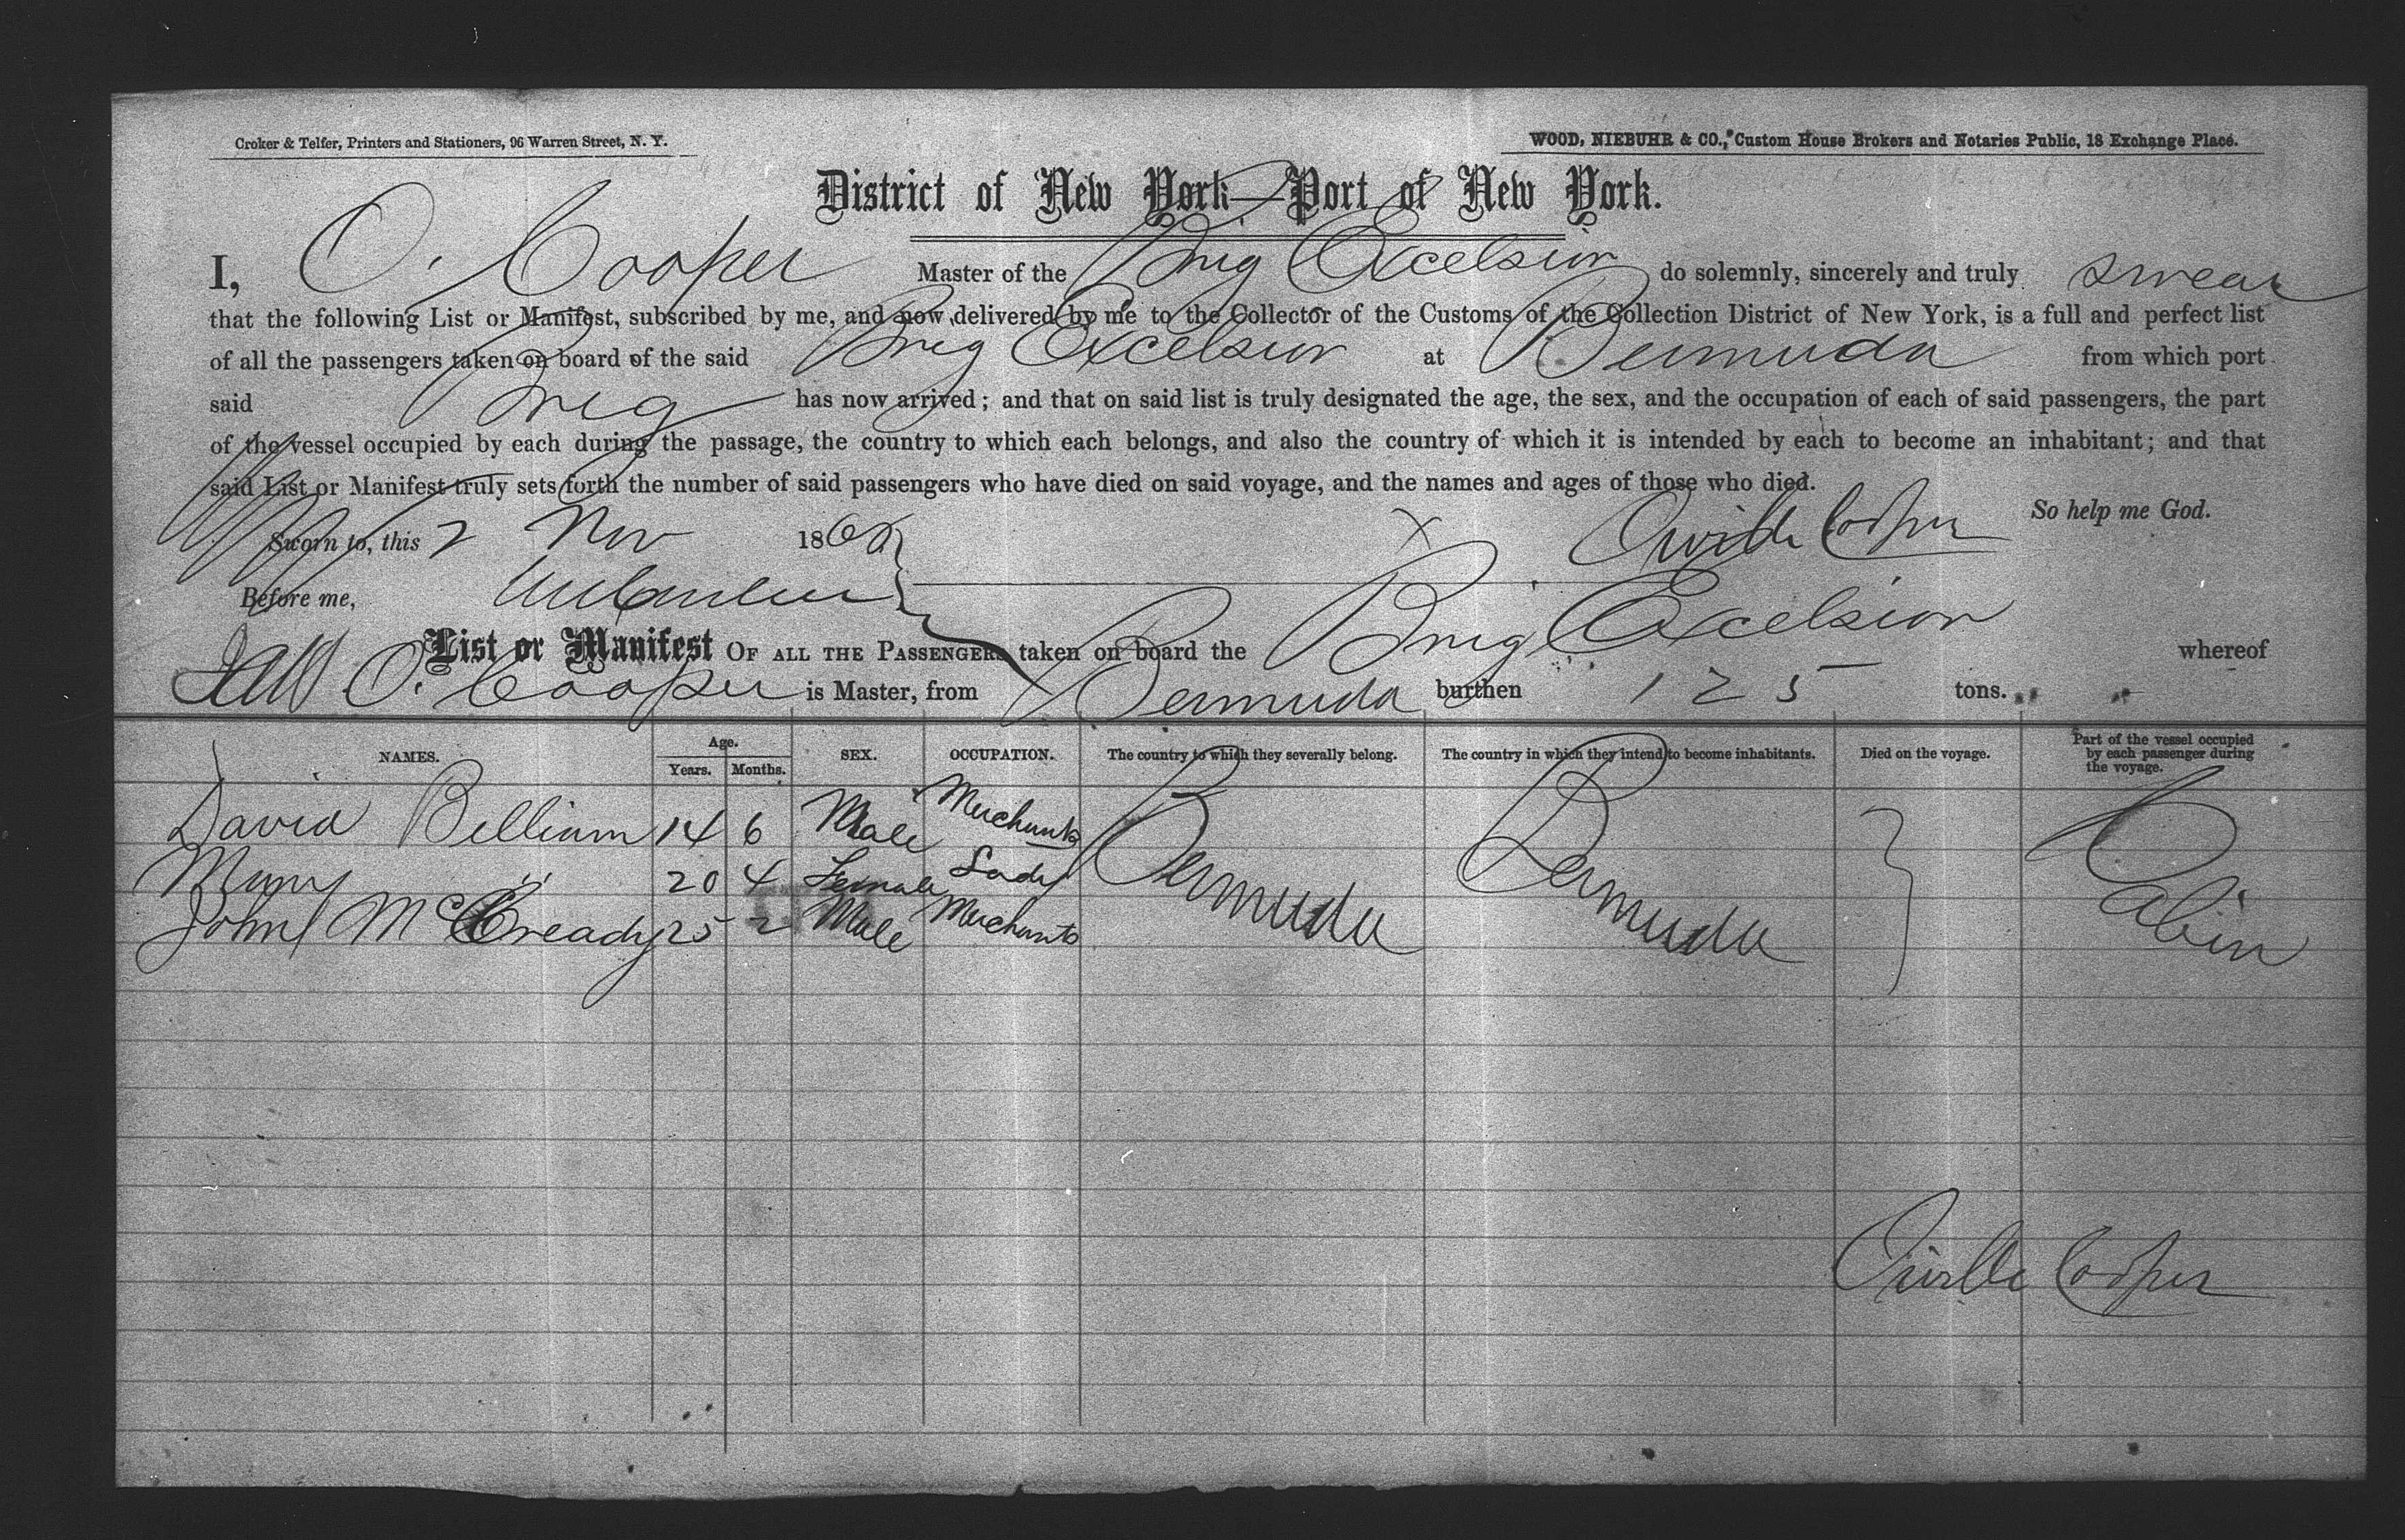 Croker & Telfer, Printers and Stationers, 96 Warren Street, N. Y.
WOOD, NIEBUHR & CO., Custom House Brokers and Notaries Public, 18 Exchange Place.
District of New York—Port of New York.
I, O. Cooper Master of the Brig Excelsior do solemnly, sincerely and truly swear
that the following List or Manifest, subscribed by me, and now delivered by me to the Collector of the Customs of the Collection District of New York, is a full and perfect list
of all the passengers taken on board of the said Brig Excelsior at Bermuda from which port
said Brig has now arrived; and that on said list is truly designated the age, the sex, and the occupation of each of said passengers, the part
of the vessel occupied by each during the passage, the country to which each belongs, and also the country of which it is intended by each to become an inhabitant; and that
said List or Manifest truly sets forth the number of said passengers who have died on said voyage, and the names and ages of those who died.
So help me God.
Sworn to, this 2 Nov 186 X Cooper
Before me,
List or Manifest OF ALL THE PASSENGERS taken on board the Brig Excelsior whereof
O. Cooper is Master, from Bermuda burthen 125 tons.
NAMES. Age. Years. Months. SEX. OCCUPATION. The country to which they severally belong. The country in which they intend to become inhabitants. Died on the voyage. Part of the vessel occupied by each passenger during the voyage.
David Bellium 14 6 Male Merchants Bermuda Bermuda Cabin
Mary " 20 4 Female Lady
John McCready 25 2 Male Merchants
Cooper